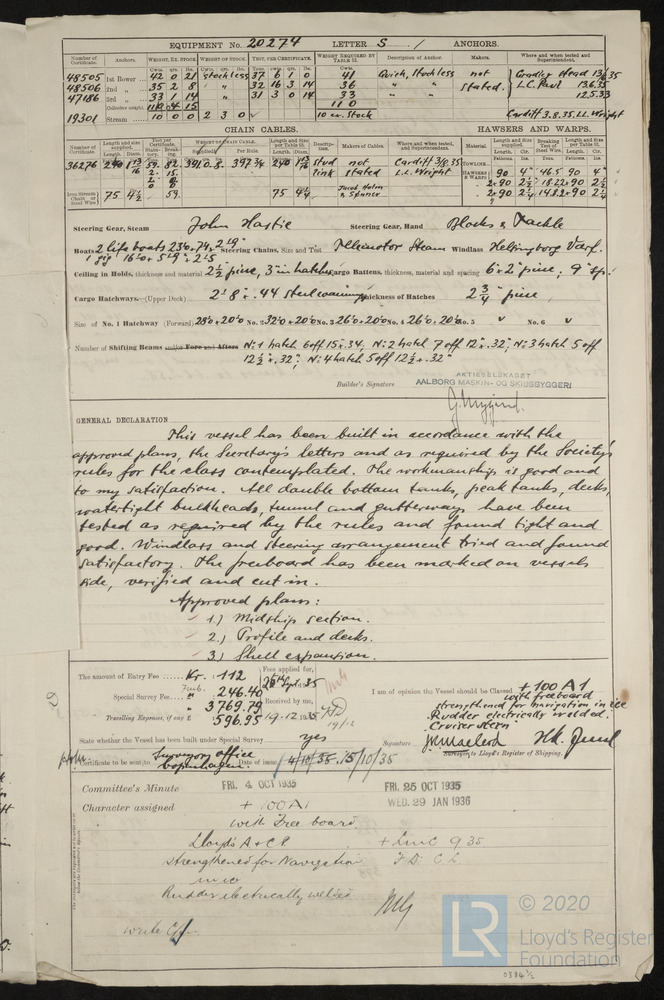 EQUIPMENT No. 20274 LETTER S ANCHORS.
Number of Certificate. Anchors. WEIGHT, EX. STOCK. WEIGHT OF STOCK. TEST, PER CERTIFICATE. WEIGHT REQUIRED BY TABLE 22. Description of Anchor. Makers. Where and when tested and Superintendent.
48505 1st Bower 42 0 21 Stockless 37 6 1 0 41 Quick, Stockless not Cradley Head 13/6/35
48506 2nd „ 35 2 8 32 16 3 14 36 " " stated. L.C. Paul 13.6.35
47186 3rd „ 33 1 14 31 3 0 14 33 " " 12.5.33
Collective weight 110 4 15 110
19301 Stream 10 0 0 2 3 0 10 ex. Stock Cardiff 3.8.35. L.L. Wright
CHAIN CABLES. HAWSERS AND WARPS.
Number of Certificate. Length and size supplied. Test per Certificate. WEIGHT OF CHAIN CABLE. Length and Size per Table 22. Description. Makers of Cables. Where and when tested, and Superintendent. Material. Length and Size supplied. Breaking Test of Steel Wire. Length and Size per Table 22.
36276 240 1 13/16 59. 82. 391.0.8. 397 3/4 240 1 13/16 Stud link not stated Cardiff 3/8.35 L.L. Wright
HAWSERS & WARPS 90 4" 46.5 90 4"
2×90 2 1/2 18.22 ×90 2 1/2
2×90 2 1/4 14.8 2×90 2 1/4
Iron Stream Chain or Steel Wire 75 4 1/2 59. 75 4 1/4
Steering Gear, Steam John Hastie Steering Gear, Hand Blocks & Tackle
Boats 2 life boats 23'0 × 7'4 × 2'9" Steering Chains, Size and Test Windlass Helsingborg Varf.
1 gig 16'0 × 5'9" × 2'5
Ceiling in Holds, thickness and material 2 1/2" pine, 3" in hatches Cargo Battens, thickness, material and spacing 6 × 2" pine; 9" sp.
Cargo Hatchways.—(Upper Deck) 2'8" × .44 Steel coamings Thickness of Hatches 2 3/4" pine
Size of No. 1 Hatchway (Forward) 28'0 × 20'0 No. 2 32'0 × 20'0 No. 3 26'0 × 20'0 No. 4 26'0 × 20'0 No. 5 No. 6
Number of Shifting Beams and/or Fore and Afters N: 1 hatch 6 off 15 × .34, N: 2 hatch 7 off 12" × .32"; N: 3 hatch 5 off
12 1/2" × .32"; N: 4 hatch 5 off 12 1/2 × .32"
AKTIESELSKABET
Builder's Signature AALBORG MASKIN- OG SKIBSBYGGERI
GENERAL DECLARATION
This vessel has been built in accordance with the
approved plans, the Secretary's letters and as required by the Society's
rules for the class contemplated. The workmanship is good and
to my satisfaction. All double bottom tanks, peak tanks, decks,
watertight bulkheads, tunnel and gutterways have been
tested as required by the rules and found tight and
good. Windlass and steering arrangement tried and found
satisfactory. The freeboard has been marked on vessels
side, verified and cut in.
Approved plans:
1.) Midship section.
2.) Profile and decks.
3.) Shell expansion.
The amount of Entry Fee Kr. 112 Fees applied for,
Special Survey Fee 246.40 28th Sept. 1935
" 3769.79 Received by me,
Travelling Expenses, if any £ " 596.95 19.12.1935
I am of opinion the Vessel should be Classed + 100 A 1
with freeboard
strengthened for navigation in ice
Rudder electrically welded.
Cruiser stern
State whether the Vessel has been built under Special Survey yes Signature
Certificate to be sent to Surveyors office Copenhagen. Date of issue 4/10/35. 15/10/35 Surveyor to Lloyd's Register of Shipping.
Committee's Minute FRI. 4 OCT 1935 FRI. 25 OCT 1935
WED. 29 JAN 1936
Character assigned + 100 A1
with Free board
Lloyd's A & C P + LMC 9.35
strengthened for Navigation F.D. C L
in ice
Rudder electrically welded
Write
© 2020
LR Lloyd's Register
Foundation